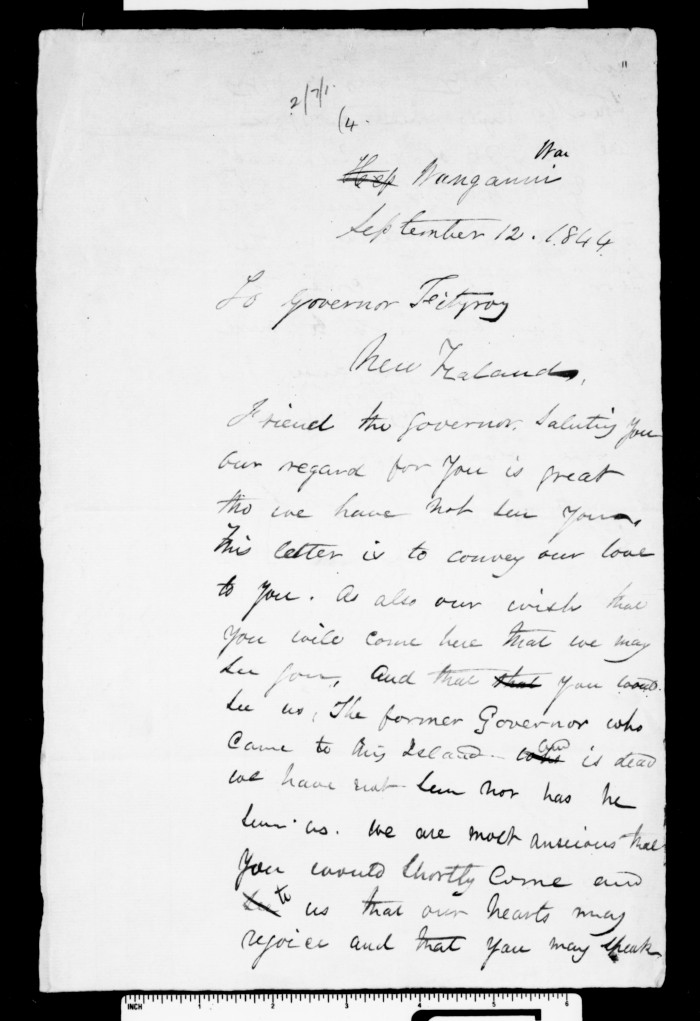 2/7/1
(4.
Wai
Wanganui
September 12. 1844.
To Governor Fitzroy
New Zealand,
Friend the Governor. Saluting you
our regard for you is great
tho we have not seen you.
This letter is to convey our love
to you. As also our wish that
you will come here that we may
see you, And that that you would
see us, The former Governor who
came to this Island - who is dead
we have not seen nor has he
seen us. we are most anxious that
you would shortly come and
see to us that our hearts may
rejoice and that you may speak
INCH 1 2 3 4 5 6